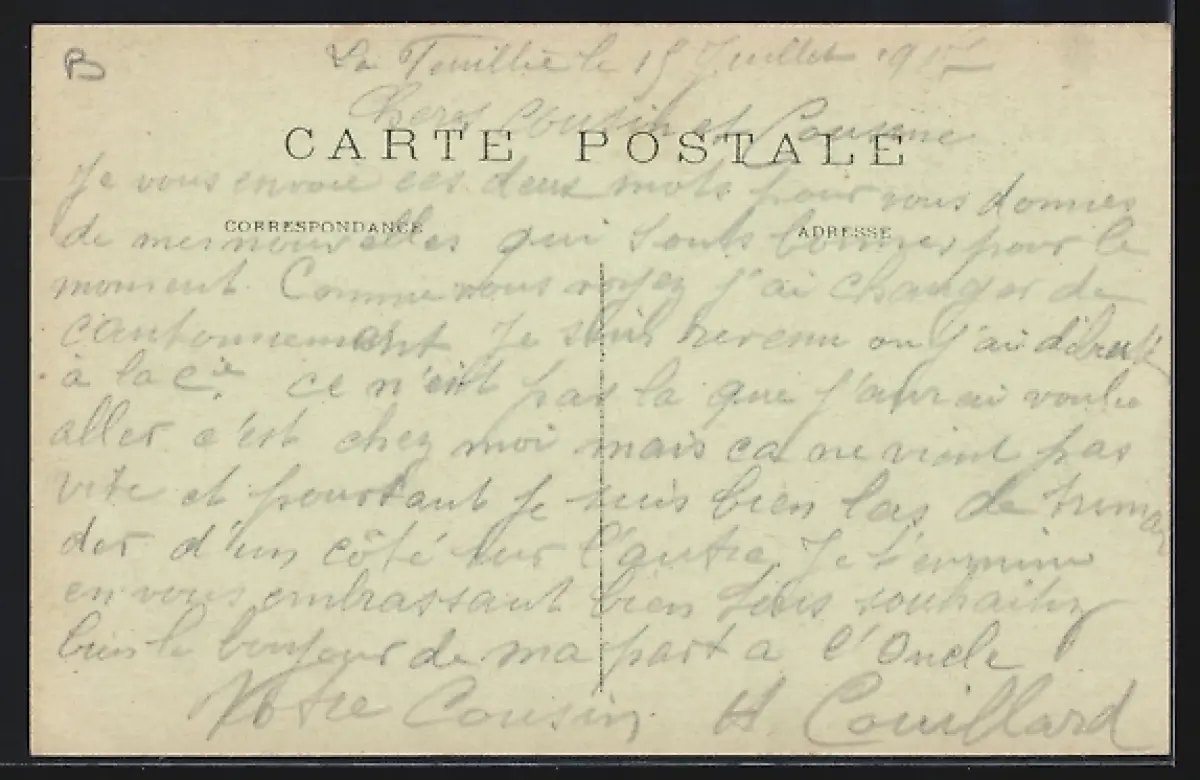 B
La Feuillie le 15 Juillet 1917
Chers Cousin et Cousine
CARTE POSTALE
Je vous envoie ces deux mots pour vous donner
CORRESPONDANCE ADRESSE
de mes nouvelles qui sont bonnes pour le
moment. Comme vous voyez j'ai changer de
cantonnement Je suis revenu ou j'ai débuté
à la Cie ce n'est pas la que j'aurai voulu
aller c'est chez moi mais ca ne vient pas
vite et pourtant je suis bien las de trimar
der d'un côté sur l'autre, Je termine
en vous embrassant bien tous souhaitez
bien le bonjour de ma part a l'Oncle
Votre Cousin H. Couillard